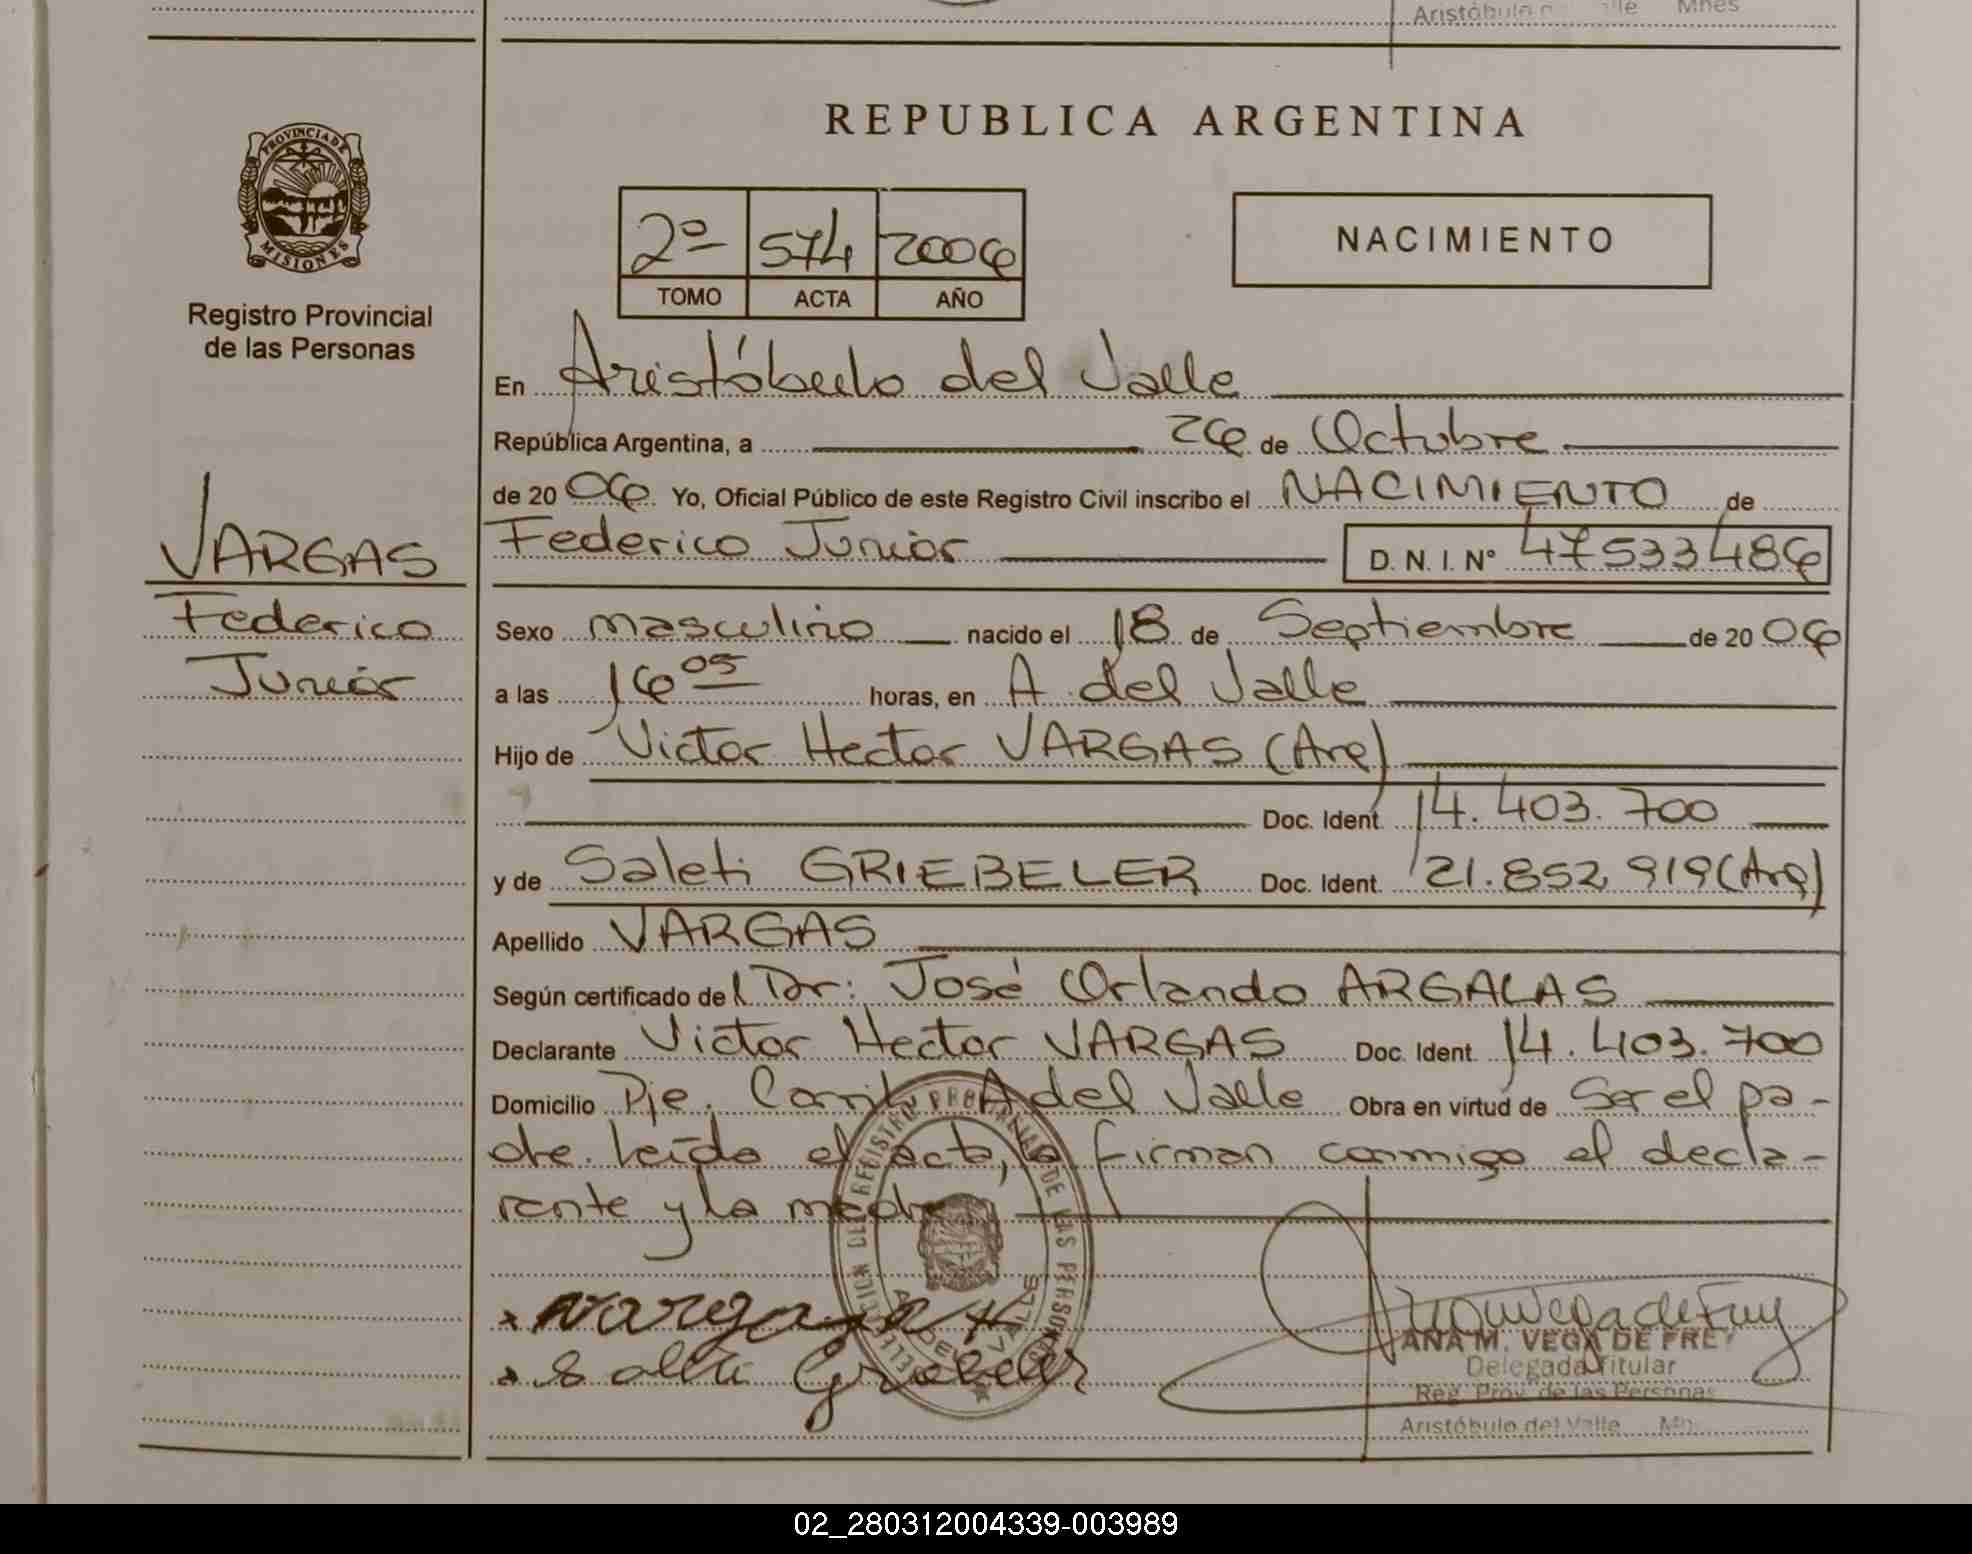 Aristóbulo
REPUBLICA ARGENTINA
PROVINCIA DE
MISIONES
Registro Provincial
de las Personas
2º 574 2006
TOMO ACTA AÑO
NACIMIENTO
En Aristóbulo del Valle
República Argentina, a 26 de Octubre
de 20 06 Yo, Oficial Público de este Registro Civil inscribo el NACIMIENTO de
Federico Junior D. N. I. Nº 47533486
VARGAS
Federico
Junior
Sexo masculino nacido el 18 de Septiembre de 20 06
a las 16 05 horas, en A. del Valle
Hijo de Victor Hector VARGAS (Arg)
Doc. Ident. 14.403.700
y de Saleti GRIEBELER Doc. Ident. 21.852.919 (Arg)
Apellido VARGAS
Según certificado del Dr: José Orlando ARGALAS
Declarante Victor Hector VARGAS Doc. Ident. 14.403.700
Domicilio Pje. A del Valle Obra en virtud de Ser el pa-
dre. Leída el acta, la firman conmigo el decla-
rante y la madre
DEL REGISTRO PROVINCIAL DE LAS PERSONAS
A. DEL VALLE
x Vargas
x Saleti Griebeler
Ana Vega de Frey
ANA M. VEGA DE FREY
Delegada Titular
Reg. Prov. de las Personas
Aristóbulo del Valle
02_280312004339-003989